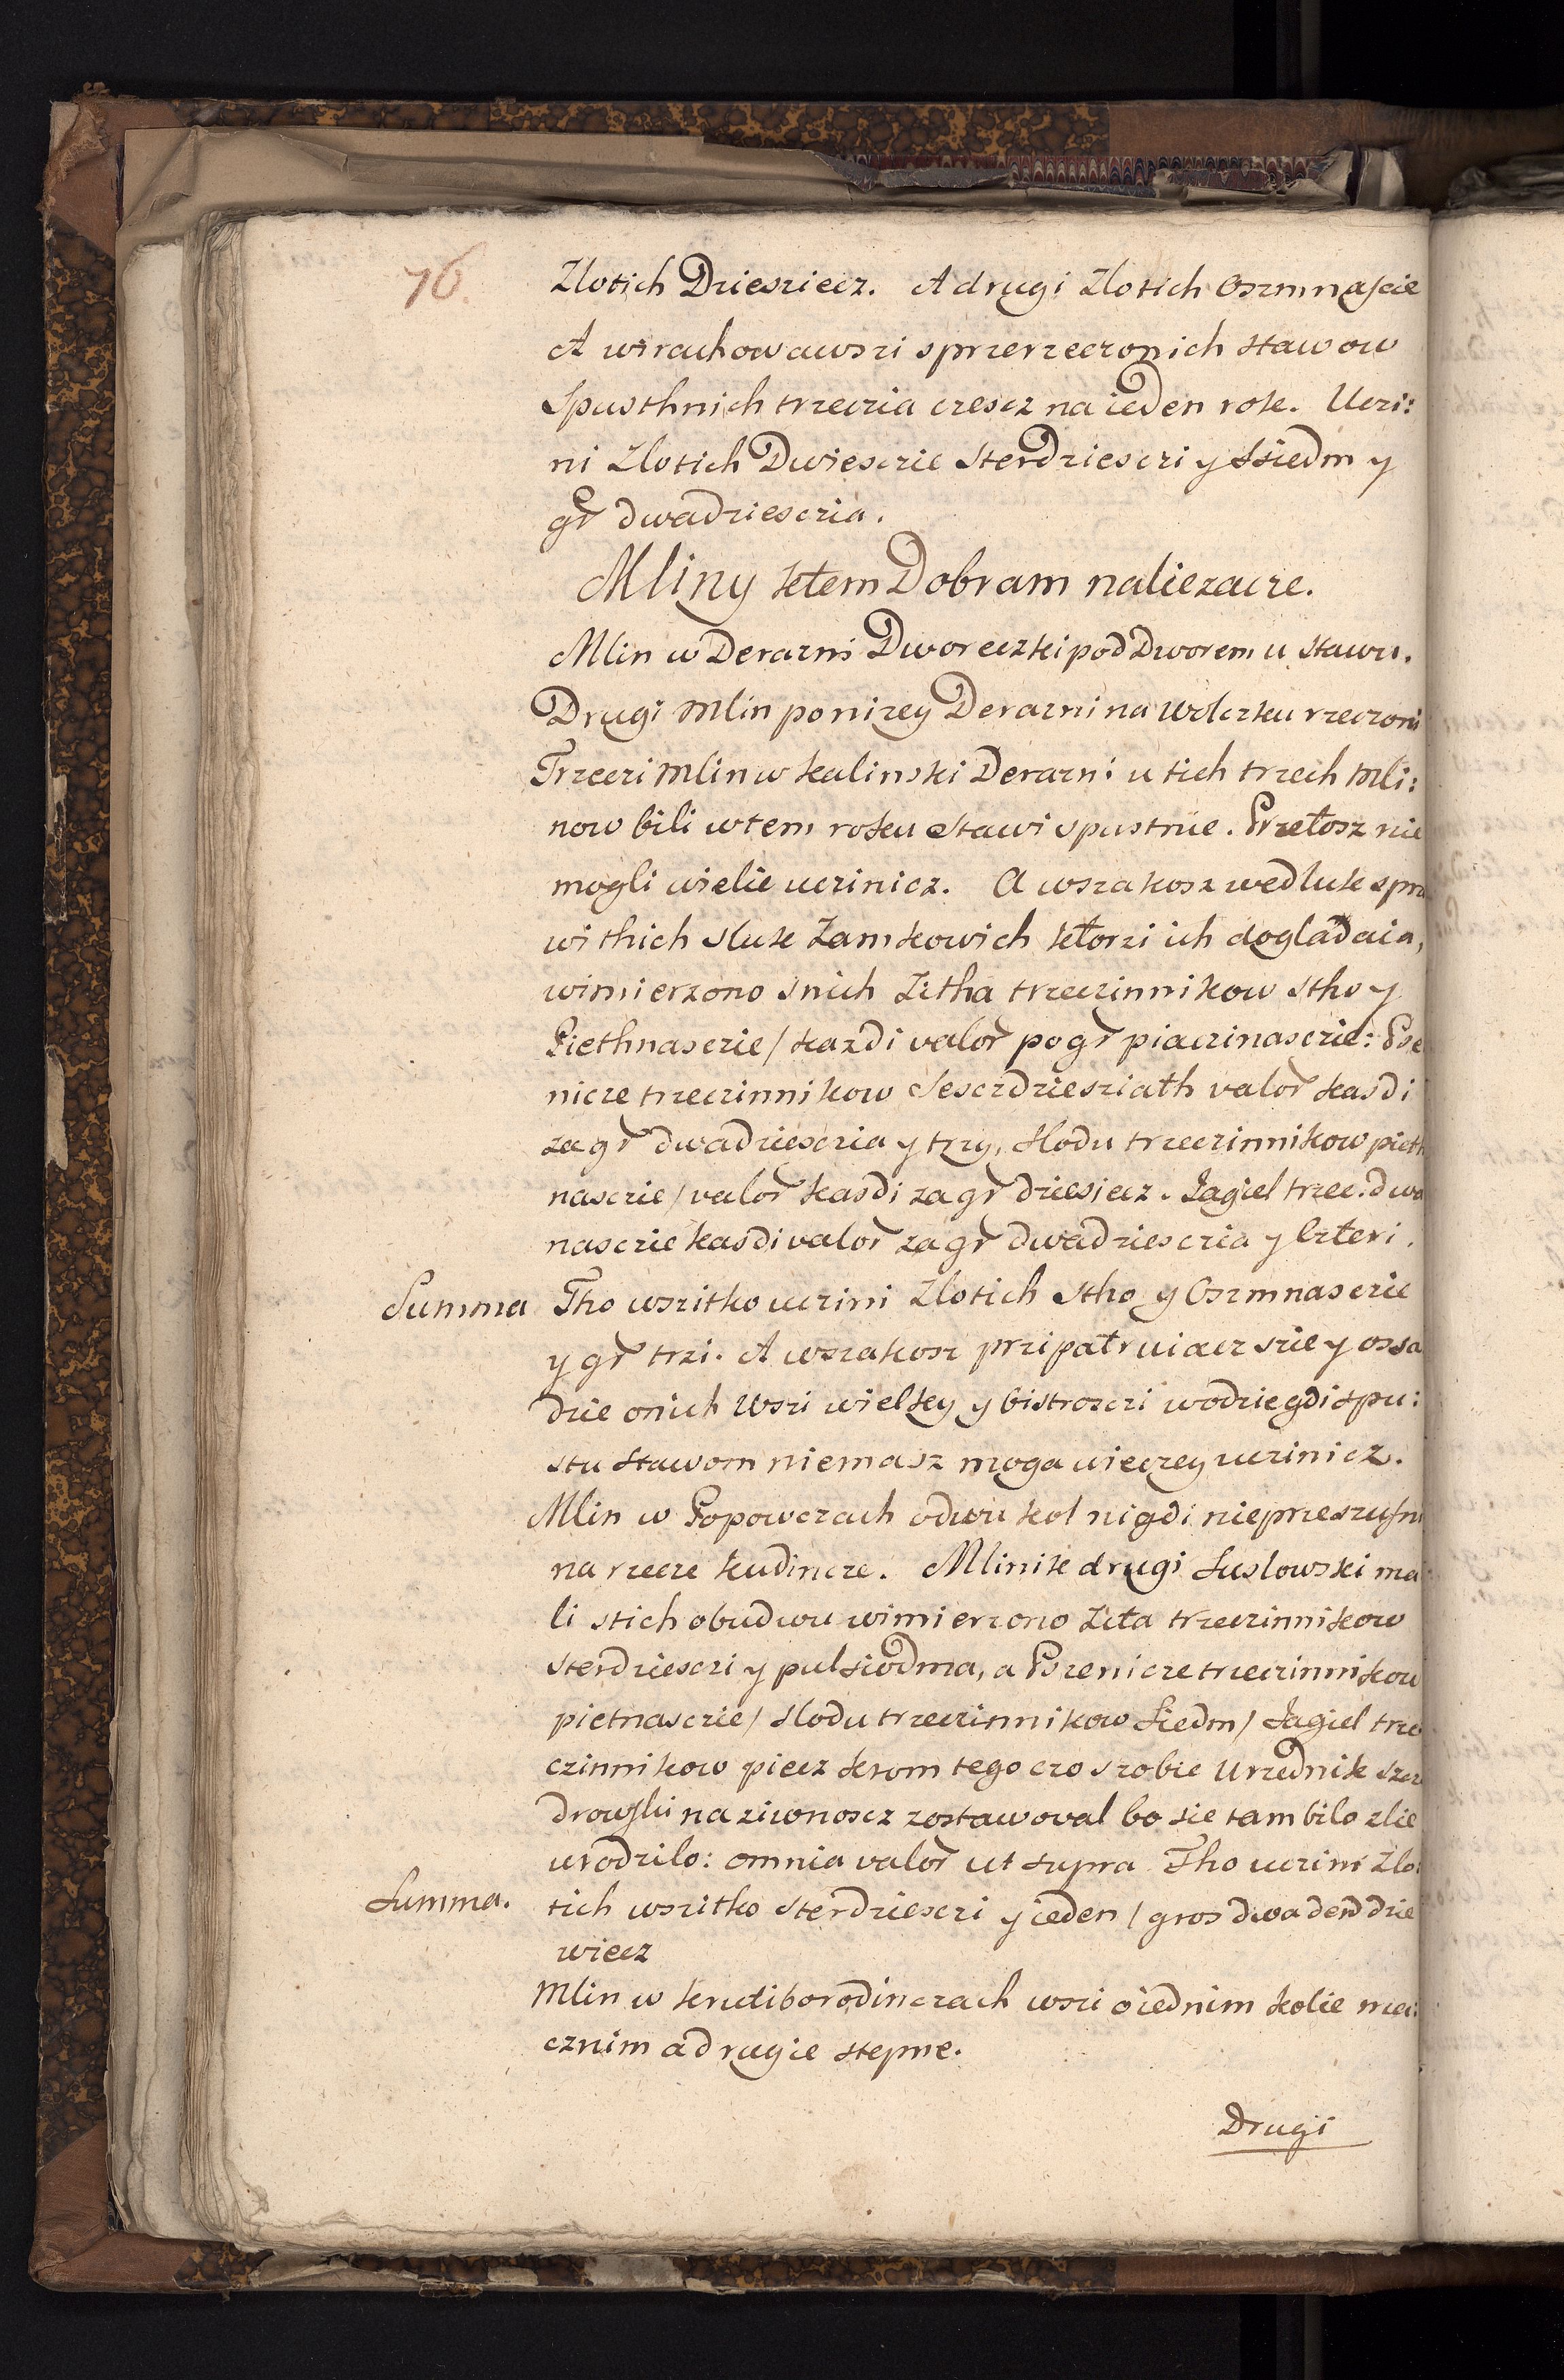 76.
Zlotich Driesziecz. A drugi Zlotich Oszmnascie
A wirachowawszi sprzerzeczonich stawow
Spusthnich trzeczia czescz na ieden rok. Uczi:
ni Zlotich Dwiesczie Sterdziesczi y Siedm y
gr dwadziesczia.
Mliny ktem Dobram naliezacze.
Mlin w Derazni Dworeczki pod Dworem u stawu.
Drugi Mlin ponizey Derazni na Wolczku rzeczoni
Trzeczi Mlin w kalinski Derazni u tich trzech Mli:
now bili wtem roku stawi spustnie. Przetosz nie
mogli wielie uczinicz. A wszakosz wedluk spra
withich sluk Zamkowich ktorzi ich dogladaia,
wimierzono snich Zitha trzeczinnikow stho y
Piethnasczie / kazdi valor po gr piaczinasczie: Pse
nicze trzeczinnikow Sesczdziesziath valor kasdi
za gr dwadziesczia y trzy, slodu trzeczinnikow pieth
nasczie / valor kasdi za gr dziesiecz. Jagiel trzec. dwa
nasczie kasdi valor za gr dwadziesczia y Czteri.
Summa Tho wszitko uczini Zlotich Stho y Oszmnasczie
y gr trzi. A wszakosz pripatruiacz szie y ossa
dzie onich Wszi wielkey y bistrosczi wodzie gdi spu:
stu stawom niemasz moga wieczey uczinicz.
Mlin w Popowczach odwu kol nigdi nieprzeszusni
na rzecze kudincze. Mlinik drugi Suslowski ma
li stich obudwu wimierzono Zita trzeczinnikow
sterdziesczi y pulsiodma, a Pszenicze trzeczinnikow
pietnasczie / slodu trzeczinnikow Siedm / Jagiel trze
czinnikow piecz krom tego czo szobie Urzednik szcz
drowski na ziwnoscz zostawowal bo sie tam bilo zlie
urodzilo: omnia valor ut supra Tho uczini Zlo:
Summa. tich wszitko sterdziesczi y ieden / gros dwa den dzie
wiecz
Mlin w krutiborodinczach wszi o iednim kolie ma:
cznim a drugie stepne.
Drugi